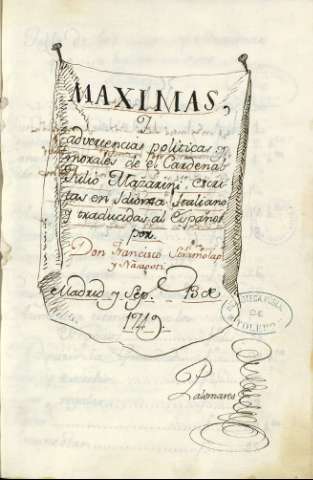 MAXIMAS,
Y
advertencias politicas y
morales de el Cardenal
Julio Mazarini, escri
tas en Idioma Italiano
y traducidas al Español
por
Don Francisco
y
Madrid y Sep.e 13 de
1749.
BIBLIOTECA PUBLICA
DE
TOLEDO
Palomares